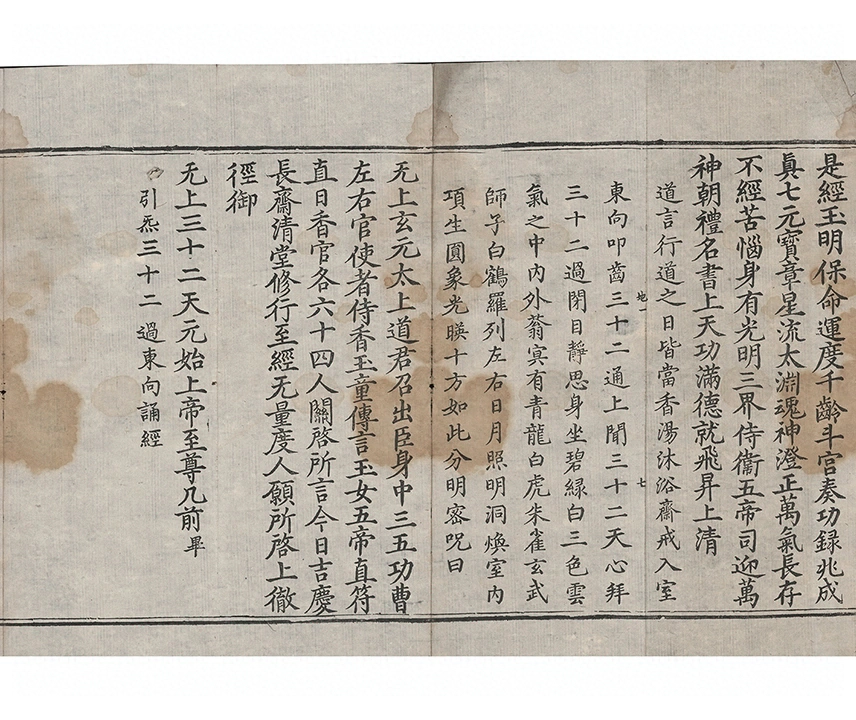 是經玉明保命運度千齡斗官奏功錄兆成
眞七元寶章星流太淵魂神澄正萬氣長存
不經苦惱身有光明三界侍衞五帝司迎萬
神朝禮名書上天功滿德就飛昇上清
道言行道之日皆當香湯沐浴齋戒入室
地一
七
東向叩齒三十二通上聞三十二天心拜
三十二過閉目靜思身坐碧綠白三色雲
氣之中內外蓊冥有青龍白虎朱雀玄武
師子白鶴羅列左右日月照明洞煥室內
項生圓象光暎十方如此分明密呪曰
无上玄元太上道君召出臣身中三五功曹
左右官使者侍香玉童傳言玉女五帝直符
直日香官各六十四人關啓所言今日吉慶
長齋清堂修行至經无量度人願所啓上徹
徑御
无上三十二天元始上帝至尊几前畢
引炁三十二過東向誦經